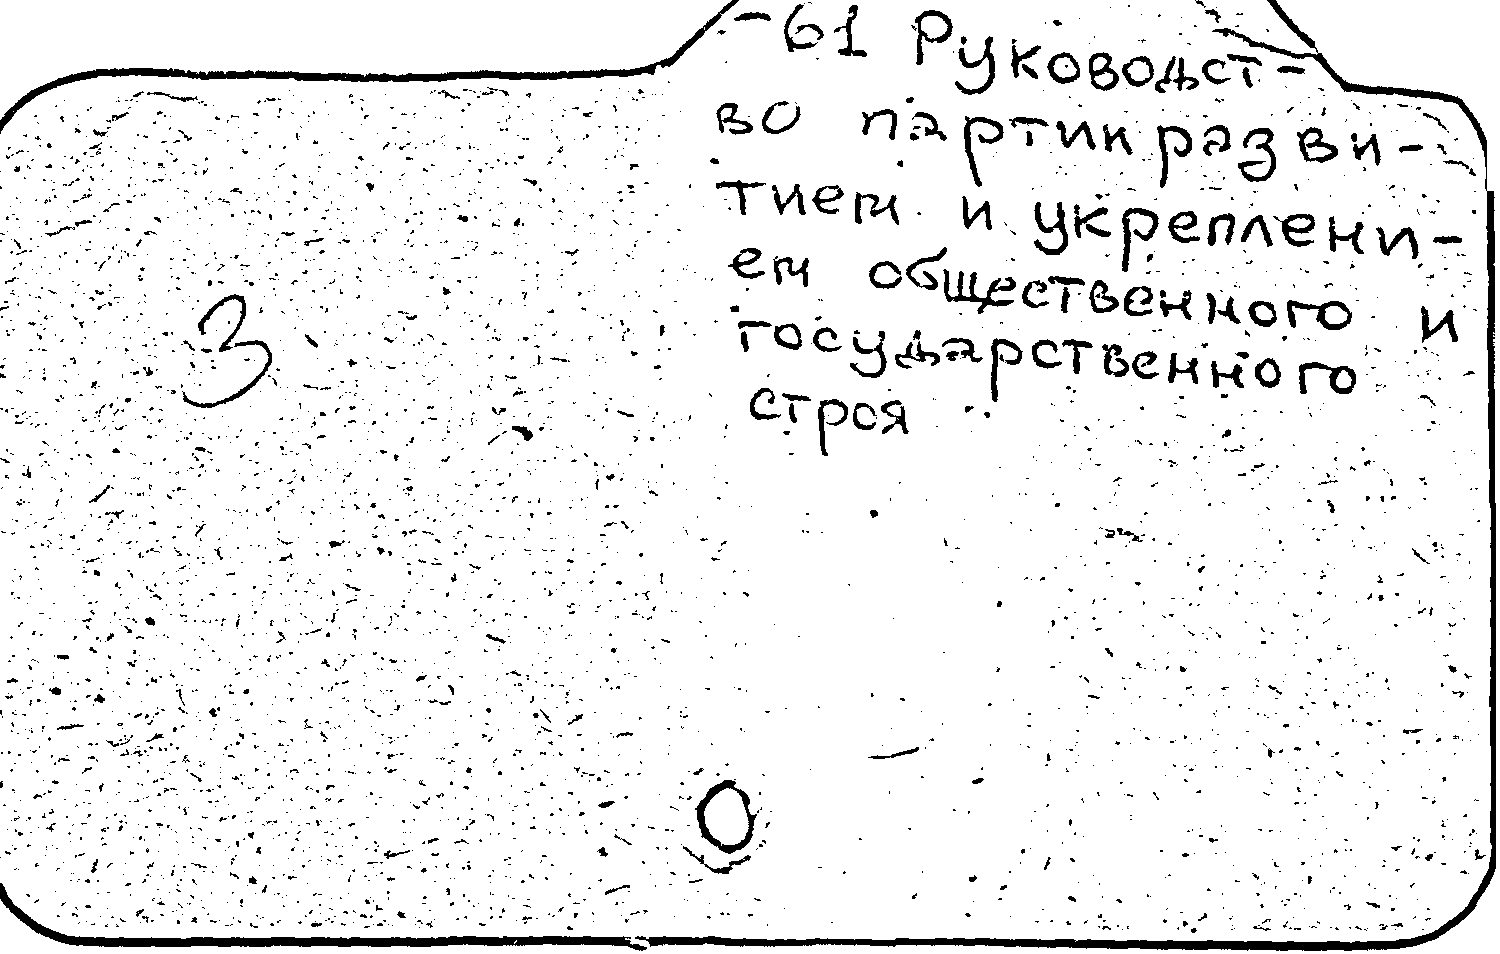 -61 Руководст-
во партии разви-
тием и укреплени-
ем общественного и
государственного
строя
3